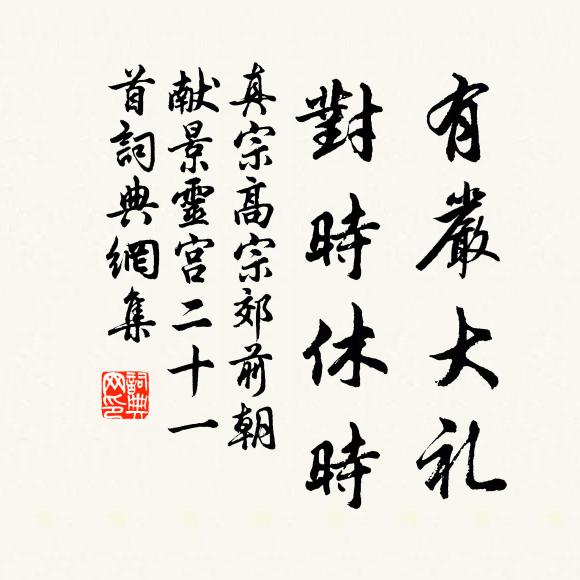 有嚴大礼
對時休時
真宗高宗郊前朝
献景靈宮二十一
首詞典網集
詞典
网印